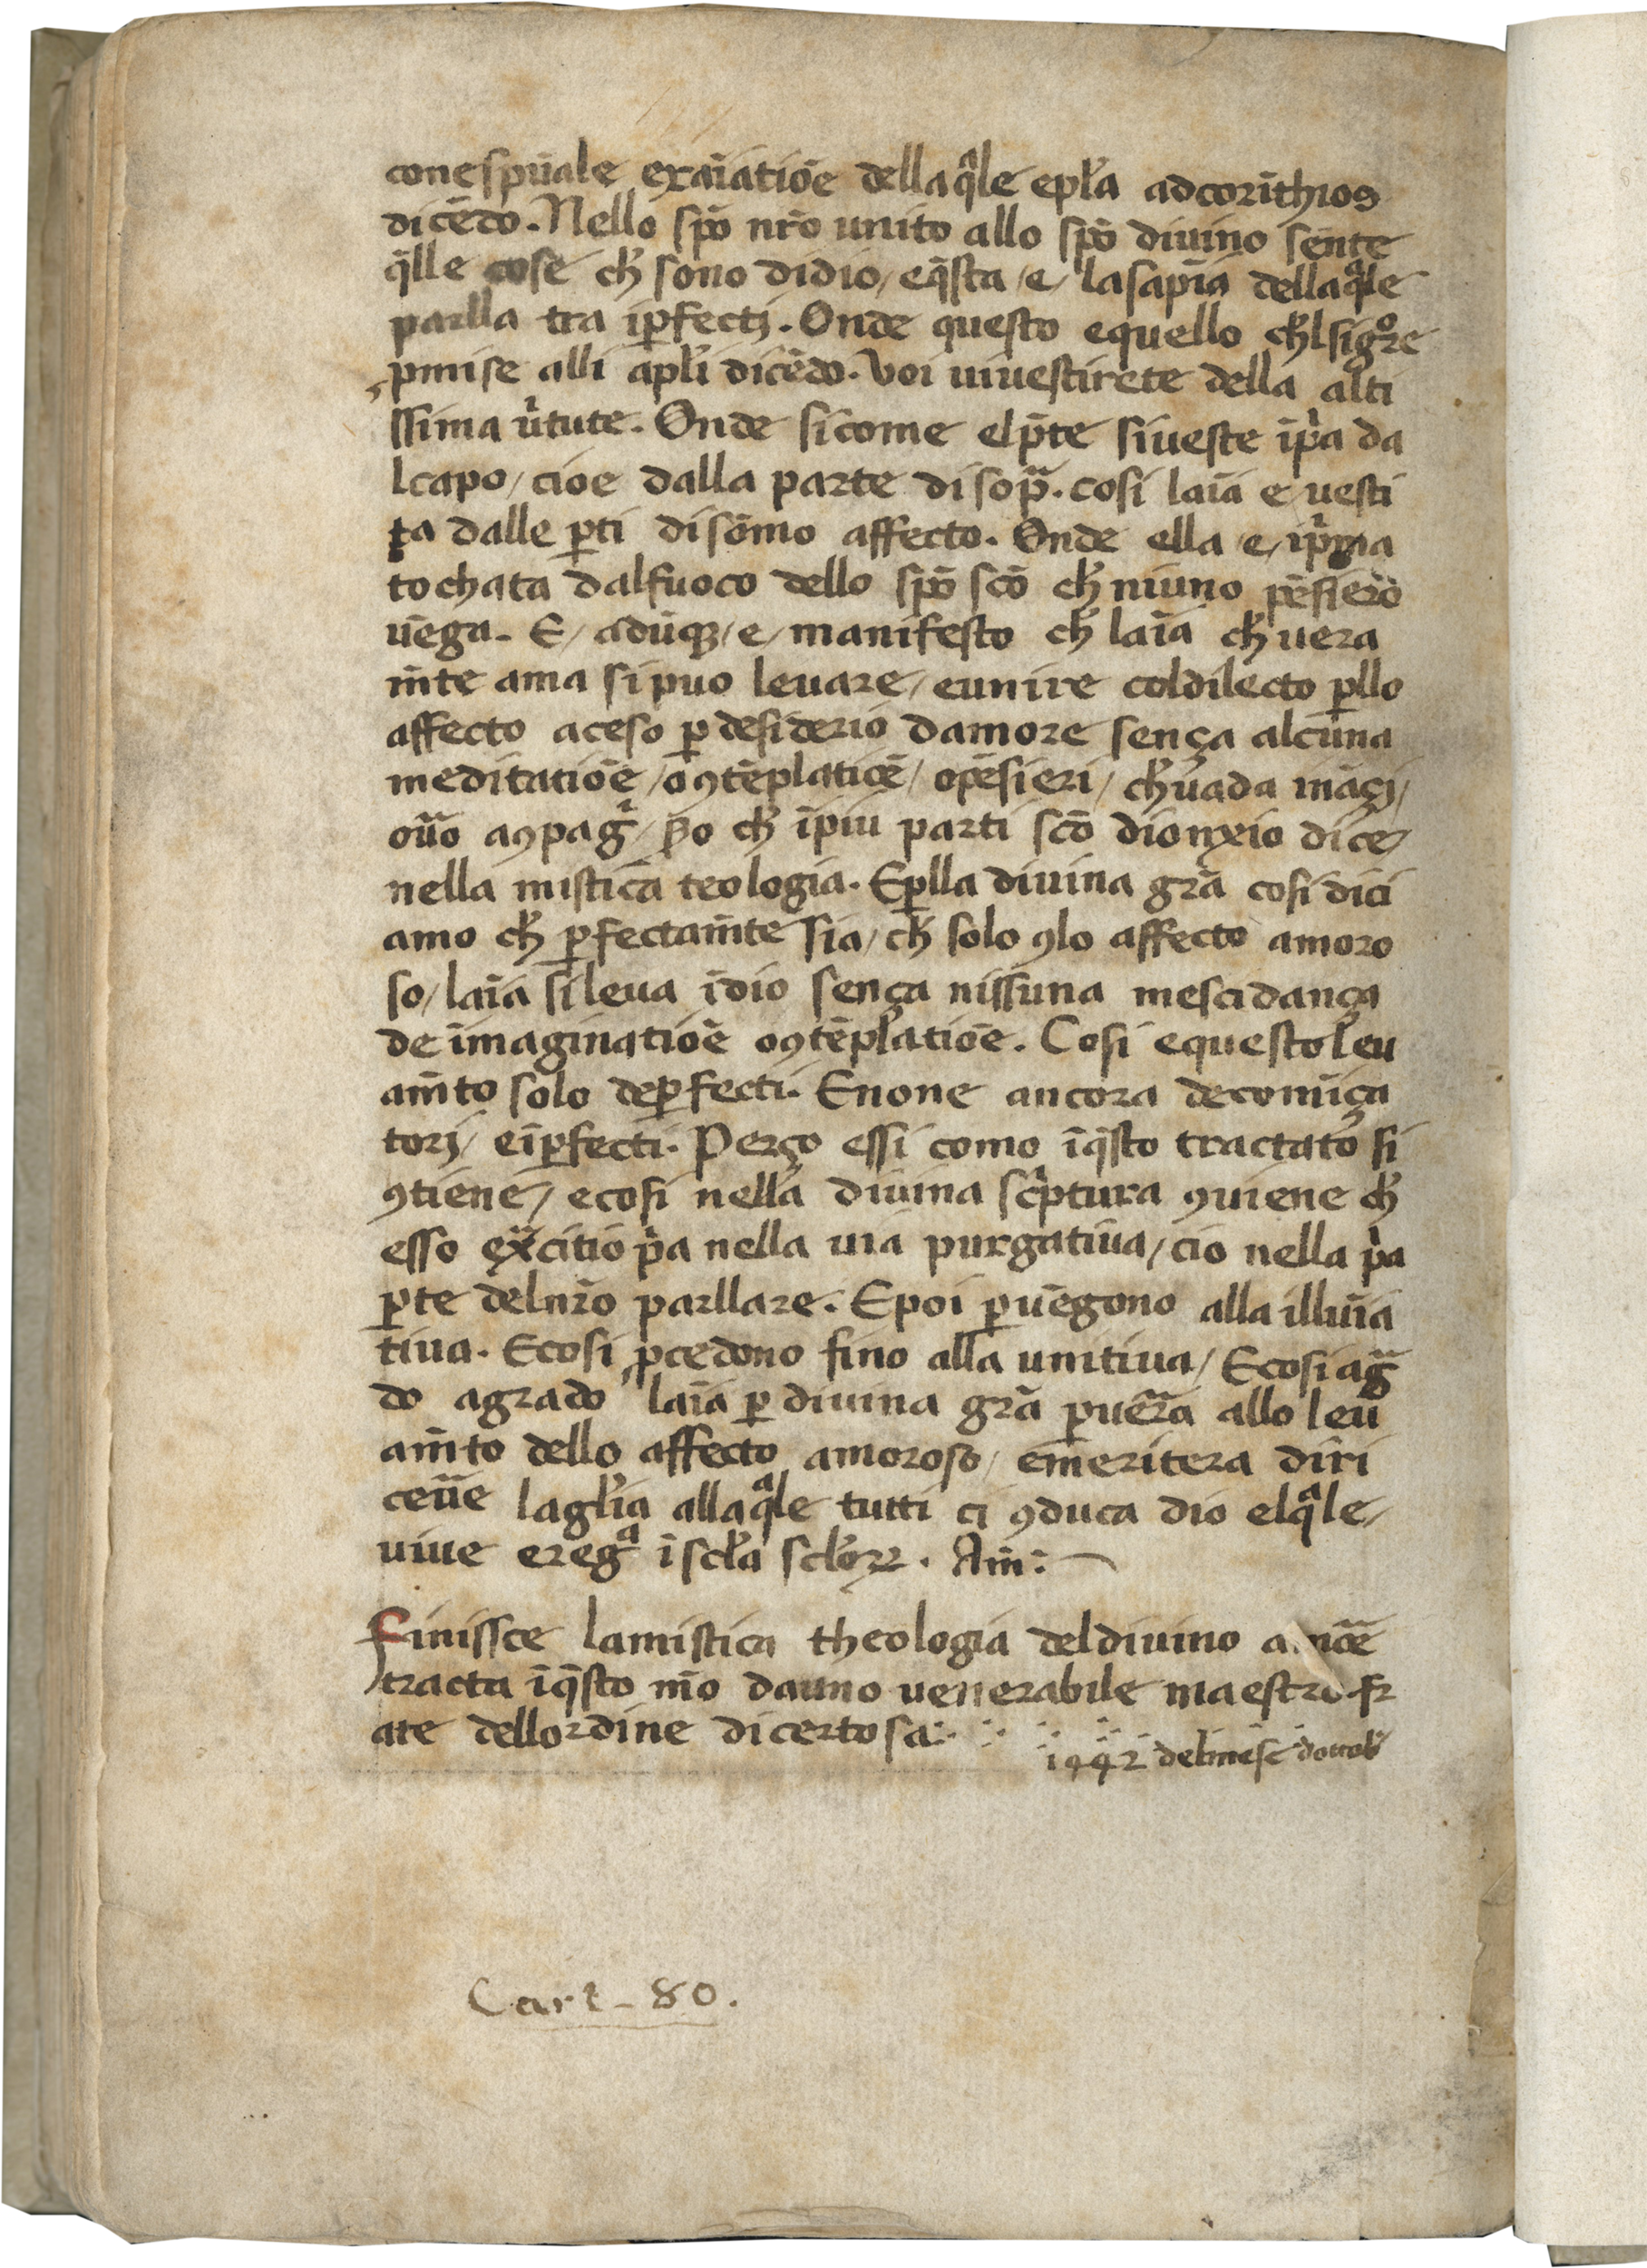 cone spũale exaĩatiõe della q̃le epl̃a ad corĩthios
dicẽdo. Nello spõ nr̃o unito allo spõ diuino sente
q̃lle cose ch̃ sono didio / eq̃sta / e / lasapĩa dellaq̃le
parlla tra iꝑfectj. Onde questo equello ch̃lsig̊re
ꝓmise alli apl̃i dicẽdo. Voi uiuestirete della alti
ssima ũtute. Onde sicome elp̃te siueste ĩpr̃a da
lcapo / cioe dalla parte disop̃. cosi laĩa e / uesti
ta dalle ꝑti disõmo affecto. Onde ella / e / ip̃ma
tochata dalfuoco dello spõ scõ ch̃ niuno pẽsiero
uẽga. E / adũqꝫ / e / manifesto ch̃ laĩa ch̃ uera
m̃te ama si puo leuare / eunire coldilecto ꝑllo
affecto aceso ꝑ desiderio damore sença alcuna
meditatiõe / o ꝯtẽplatiõe / opẽsieri / ch̃ uada inãçi /
oũo aꝯpag̃ / ꝑo ch̃ ĩpiu parti scõ dionẏio dice /
nella mistica teologia. Eꝑlla diuina grã cosi dici
amo ch̃ ꝑfectam̃te sia / ch̃ solo ꝯlo affecto amoro
so / laĩa si leua ĩdio sença nissuna mescidança
de imaginatiõe o ꝯtẽpl̃atiõe. Cosi equesto leu
am̃to solo deꝑfecti. Enone ancora decomĩça
torj / eiꝑfecti. Perço essi como ĩq̃sto tractato si
ꝯtiene / ecosi nella diuina scr̃ptura ꝯuiene ch̃
esso exc̃itio p̃a nella uia purgatiua / cio nella p̃a
ꝑte delnr̃o parllare. Epoi ꝑuẽgono alla illuĩa
tiua. Ecosi ꝓcedono fino alla unitiua / Ecosi ag̃
do agrado laĩa ꝑ diuina grã ꝑuẽra allo leu
am̃to dello affecto amoroso / emeritera diri
ceũe lagl̃ia allaq̃le tutti ci ꝯduca dio elq̃le /
uiue ereg̃ ĩ scl̃a scl̃oꝝ. Am̃:
Finissce lamistica theologia deldiuino
tracta ĩq̃sto mõ dauno uenerabile maestro fr
ate dellordine dicertosa:
1442 delmese dottob̃
Cart - 80.